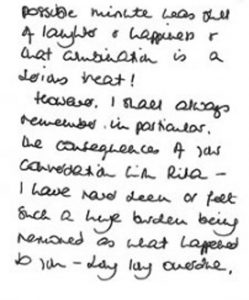 possible minute was full
of laughter & happiness &
that combination is a
serious treat!
However, I shall always
remember, in particular,
the consequences of your
conversation with Rita –
I have never seen or felt
such a huge burden being
removed as what happened
to you – day lay overdue.